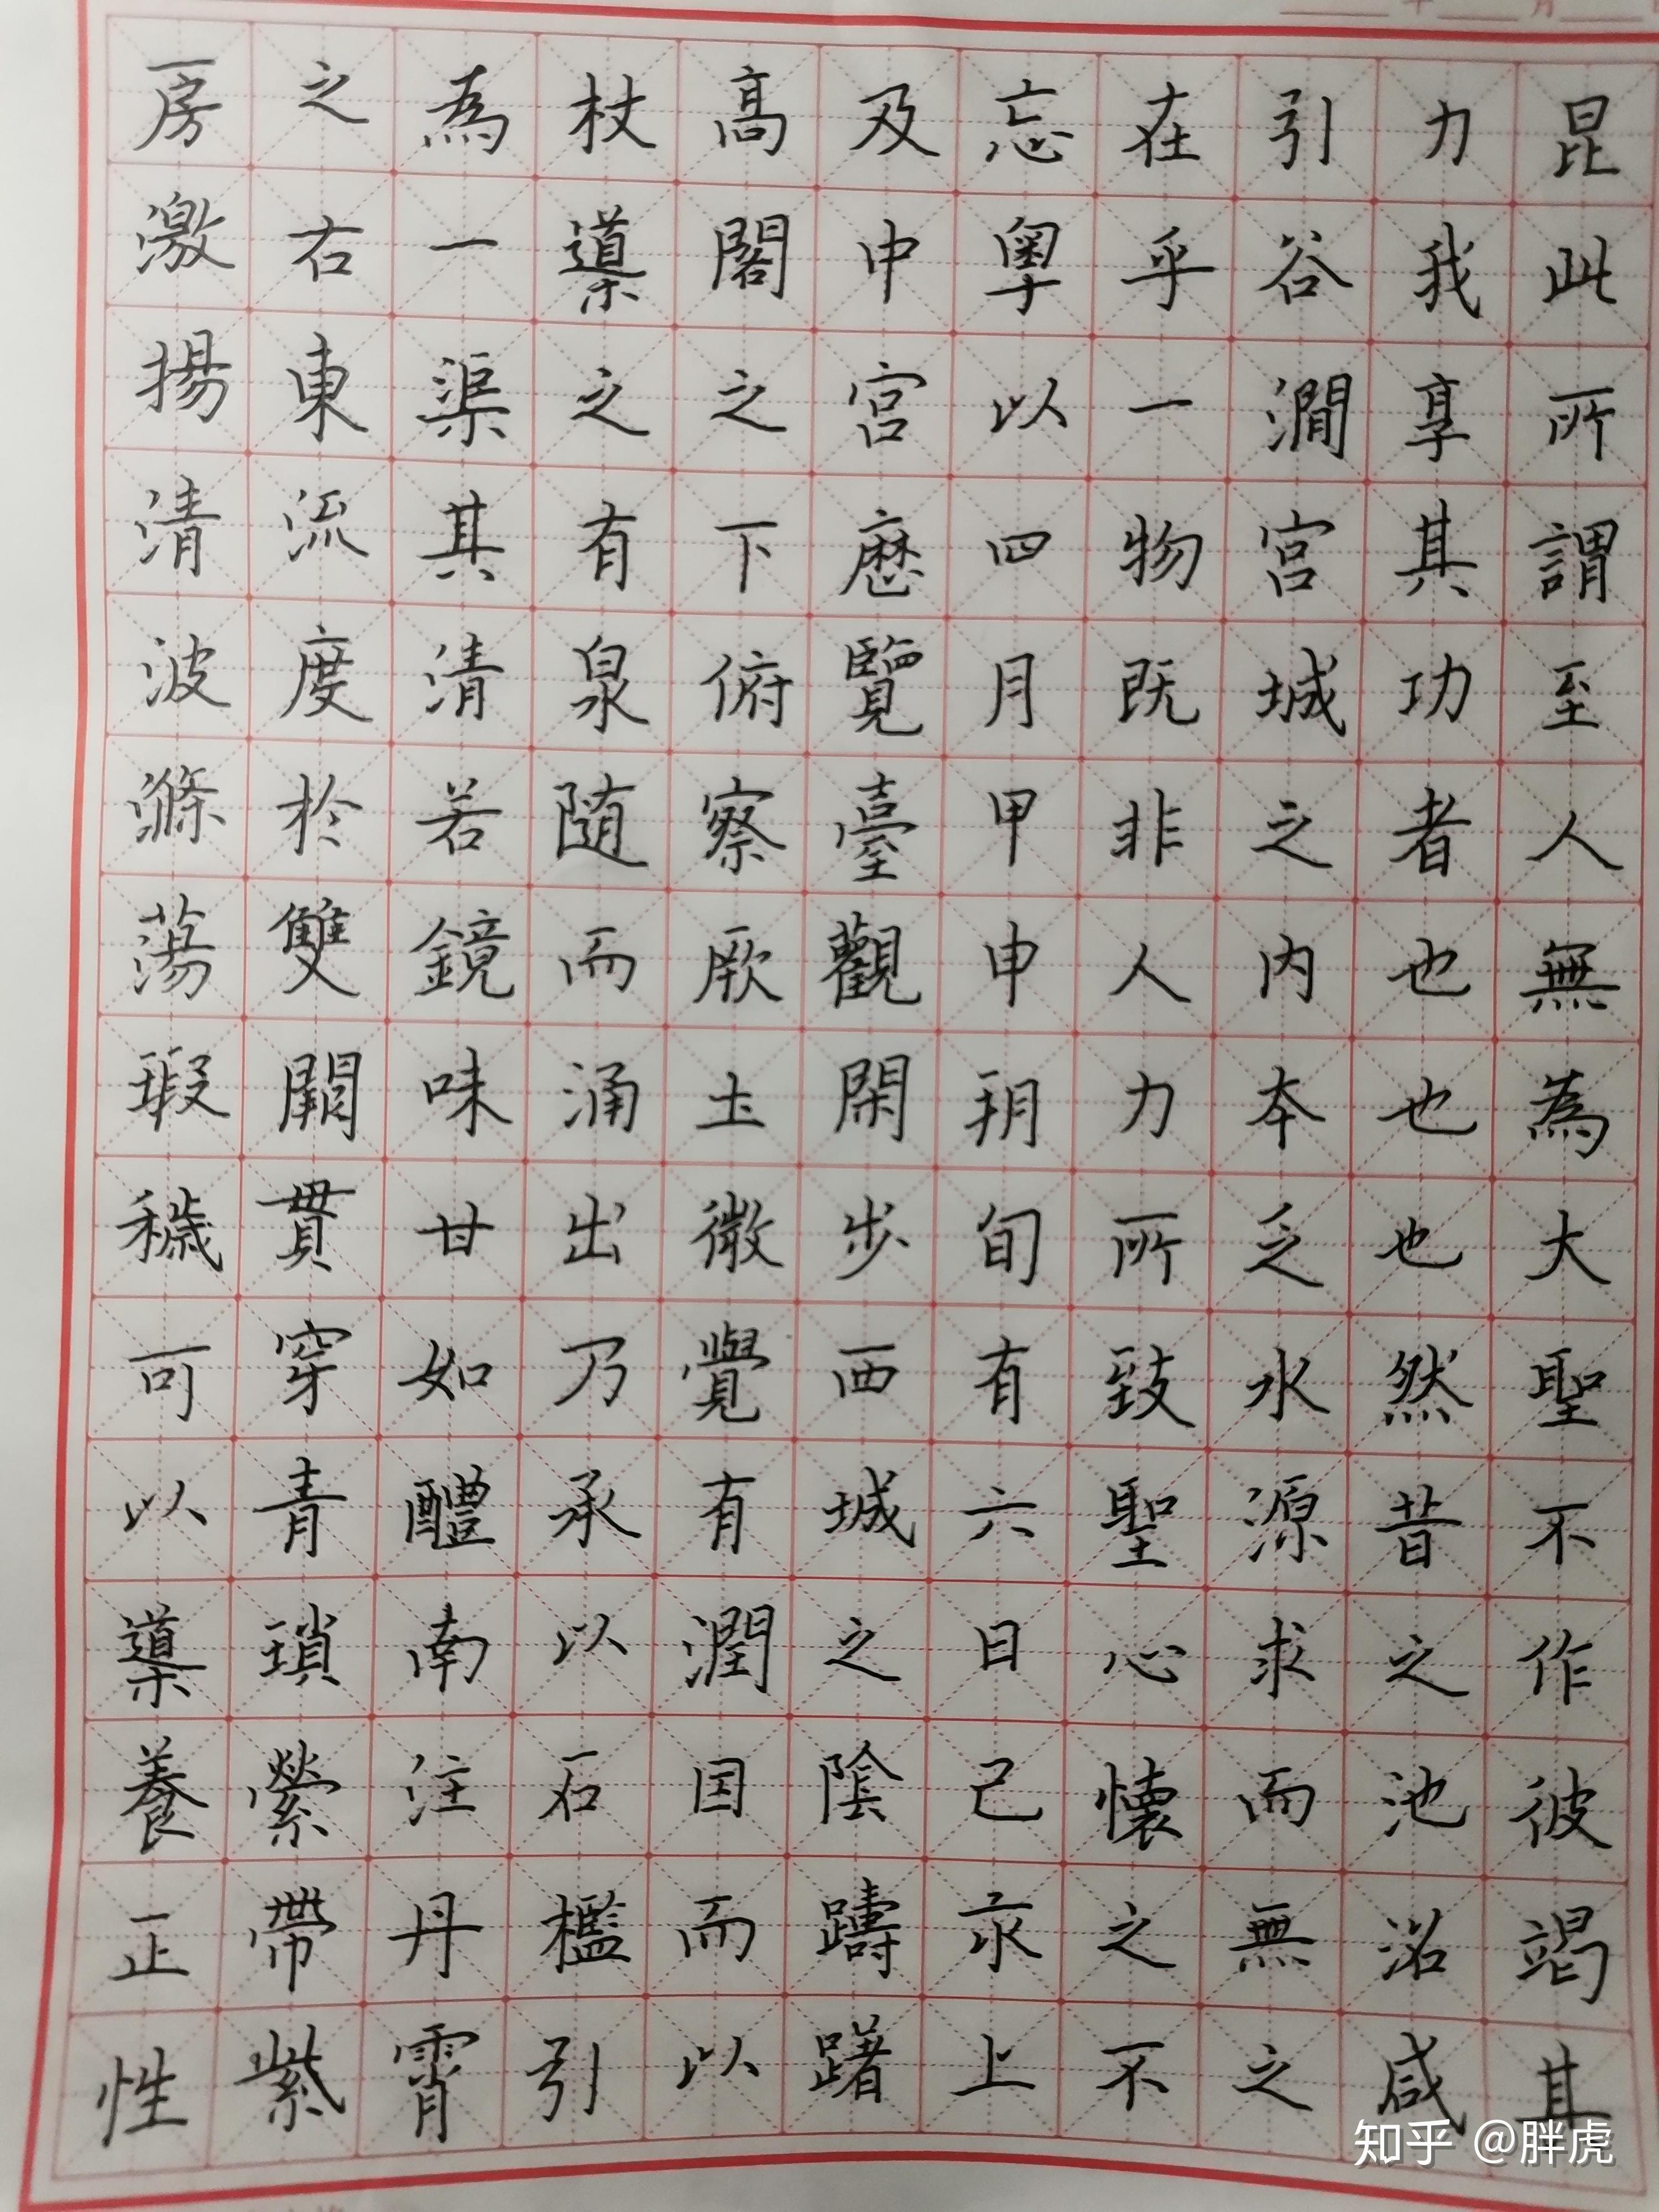 年 月
昆此所謂至人無為大聖不作彼竭其
力我享其功者也也也然昔之池沼咸
引谷澗宮城之內本乏水源求而無之
在乎一物既非人力所致聖心懷之不
忘粤以四月甲申朔旬有六日己亥上
及中宮歷覽臺觀閑步西城之陰躊躇
高閣之下俯察厥土微覺有潤因而以
杖導之有泉隨而涌出乃承以石檻引
為一渠其清若鏡味甘如醴南注丹霄
之右東流度於雙闕貫穿青瑣縈帶紫
房激揚清波滌蕩瑕穢可以導養正性
知乎 @胖虎